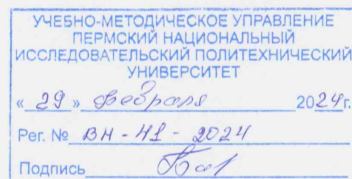 УЧЕБНО-МЕТОДИЧЕСКОЕ УПРАВЛЕНИЕ
ПЕРМСКИЙ НАЦИОНАЛЬНЫЙ
ИССЛЕДОВАТЕЛЬСКИЙ ПОЛИТЕХНИЧЕСКИЙ
УНИВЕРСИТЕТ
« 29 » февраля 2024г.
Рег. № ВН - 41 - 2024
Подпись